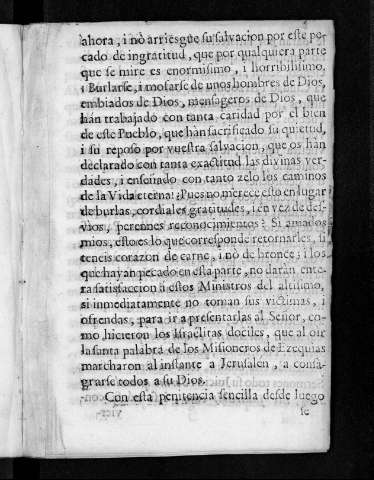 ahora, i nò arriesgue su salvacion por este pe-
cado de ingratitud, que por qualquiera parte
que se mire es enormisimo, i horribilisimo.
¡ Burlarse, i mofarse de unos hombres de Dios,
embiados de Dios, mensageros de Dios, que
hán trabajado con tanta caridad por el bien
de este Pueblo, que hán sacrificado su quietud,
i su reposo por vuestra salvacion, que os hán
declarado con tanta exactitud las divinas ver-
dades, i enseñado con tanto zelo los caminos
de la Vida eterna! ¿Pues no merece esto en lugar
de burlas, cordiales gratitudes, i en vez de des-
vios, perennes reconocimientos? Si amados
mios, esto es lo que corresponde retornarles, si
teneis corazon de carne, i nò de bronce; i los
que hayan pecado en esta parte, no darán ente-
ra satisfaccion à estos Ministros del altisimo,
si inmediatamente no toman sus victimas, i
ofrendas, para ir a presentarlas al Señor, co-
mo hicieron los Israelitas dociles, que al oir
la santa palabra de los Misioneros de Ezequias
marcharon al instante a Jerusalen, a consa-
grarse todos a su Dios.
Con esta penitencia sencilla desde luego
se